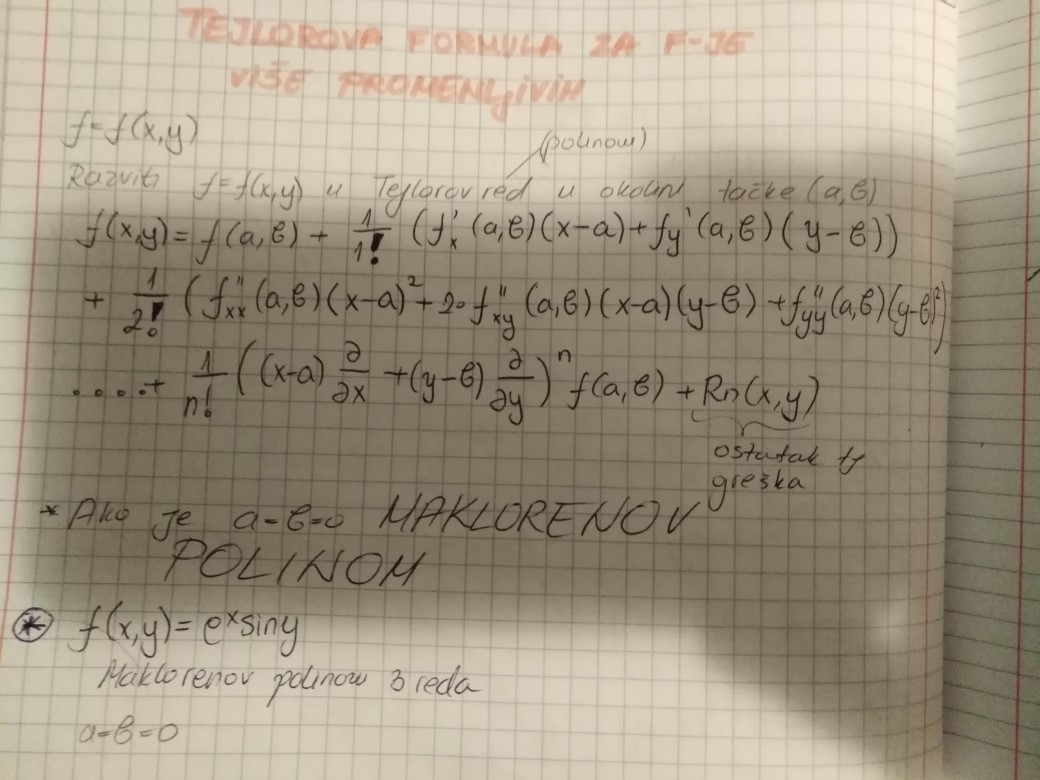 TEJLOROVA FORMULA ZA F-JE
VIŠE PROMENLJIVIH
f=f(x,y)
(polinom)
Razviti f=f(x,y) u Tejlorov red u okolini tačke (a,b)
f(x,y)= f(a,b) + 1/1! (f'x (a,b)(x-a)+fy'(a,b)(y-b))
+ 1/2! (f''xx (a,b)(x-a)²+2·f''xy (a,b)(x-a)(y-b) +f''yy(a,b)(y-b)²)
.....+ 1/n! ((x-a) ∂/∂x +(y-b) ∂/∂y)ⁿ f(a,b) + Rn(x,y)
ostatak tj
greška
* Ako je a=b=0 MAKLORENOV
POLINOM
* f(x,y)= eˣsiny
Maklorenov polinom 3 reda
a=b=0